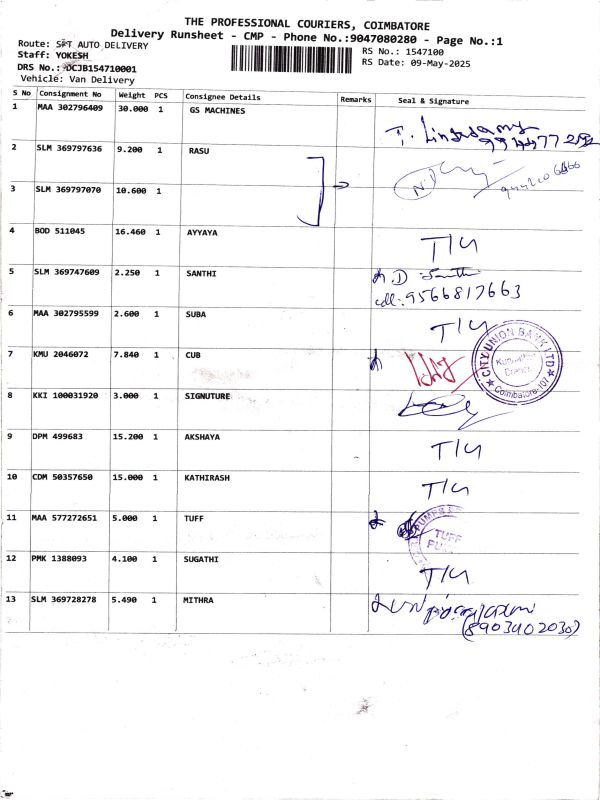 THE PROFESSIONAL COURIERS, COIMBATORE
Delivery Runsheet - CMP - Phone No.:9047080280 - Page No.:1
Route: SPT AUTO DELIVERY
Staff: YOKESH
DRS No.: DCJB154710001
Vehicle: Van Delivery
RS No.: 1547100
RS Date: 09-May-2025
S No Consignment No Weight PCS Consignee Details Remarks Seal & Signature
1 MAA 302796409 30.000 1 GS MACHINES
2 SLM 369797636 9.200 1 RASU
3 SLM 369797070 10.600 1
4 BOD 511045 16.460 1 AYYAYA T/4
5 SLM 369747609 2.250 1 SANTHI
cell: 9566817663
6 MAA 302795599 2.600 1 SUBA T/4
7 KMU 2046072 7.840 1 CUB
CITY UNION BANK LTD
Branch
Coimbatore-107
8 KKI 100031920 3.000 1 SIGNUTURE
9 DPM 499683 15.200 1 AKSHAYA T/4
10 CDM 50357650 15.000 1 KATHIRASH T/4
11 MAA 577272651 5.000 1 TUFF
TUFF
12 PMK 1388093 4.100 1 SUGATHI T/4
13 SLM 369728278 5.490 1 MITHRA
(8903402030)